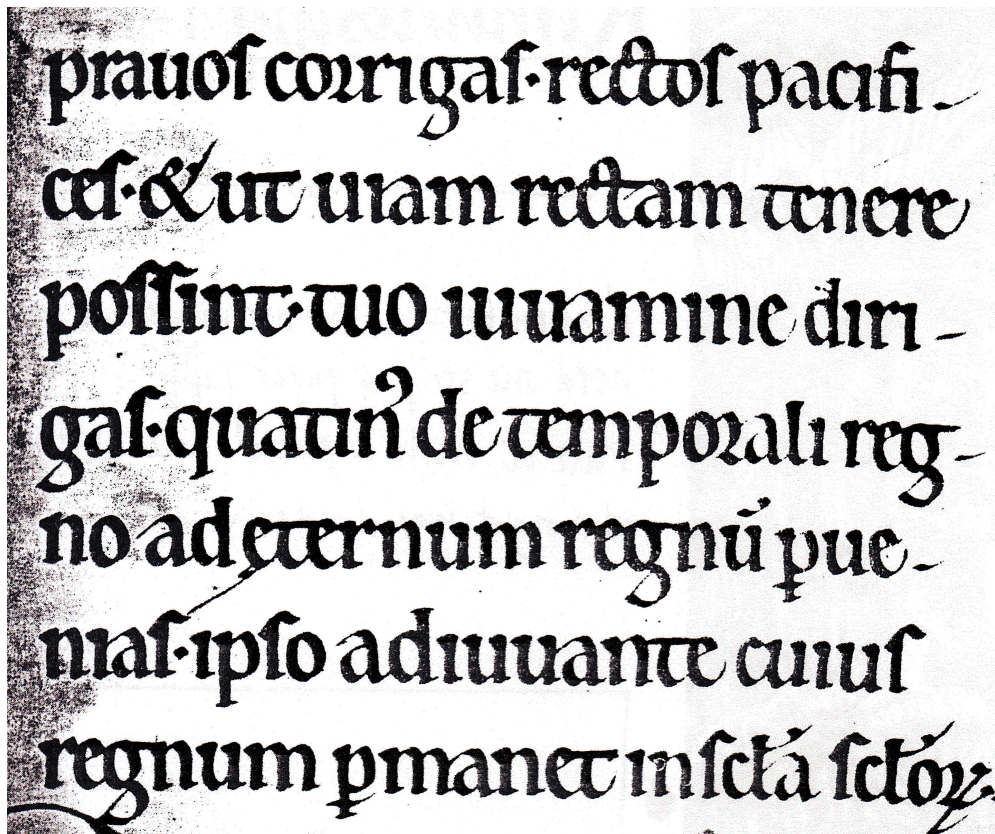 prauoſ corrigaſ·rectoſ pacifi-
ceſ·& ut uiam rectam tenere
poſſint·tuo iuuamine diri-
gaſ·quatinꝰ de temporali reg-
no ad ęternum regnū ꝑue-
niaſ·ipſo adiuuante cuiuſ
regnum ꝑmanet in ſcła ſcłoꝝ·